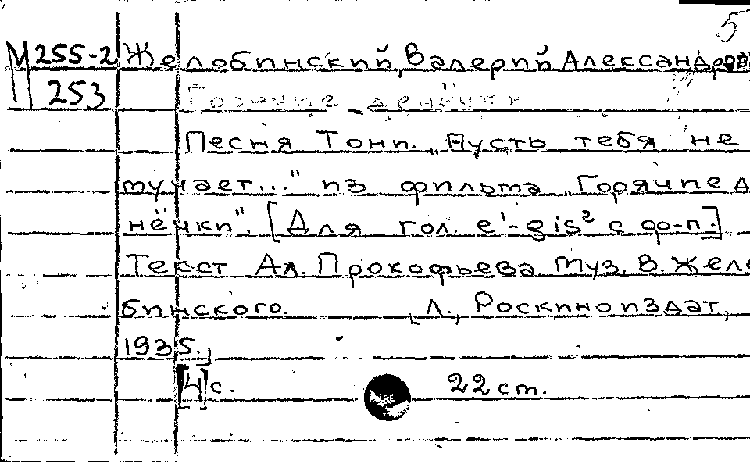 5
М 255-2 Желобинский, Валерий Александров
253 Горячие денёчки
Песня Тони. „Пусть тебя не
мучает..." из фильма „Горячие де
нёчки". [Для гол. e¹-gis² с ф-п.]
Текст Ал. Прокофьева. Муз. В. Жело
бинского. [Л., Роскиноиздат,
1935.]
[4]с. 22 cm.